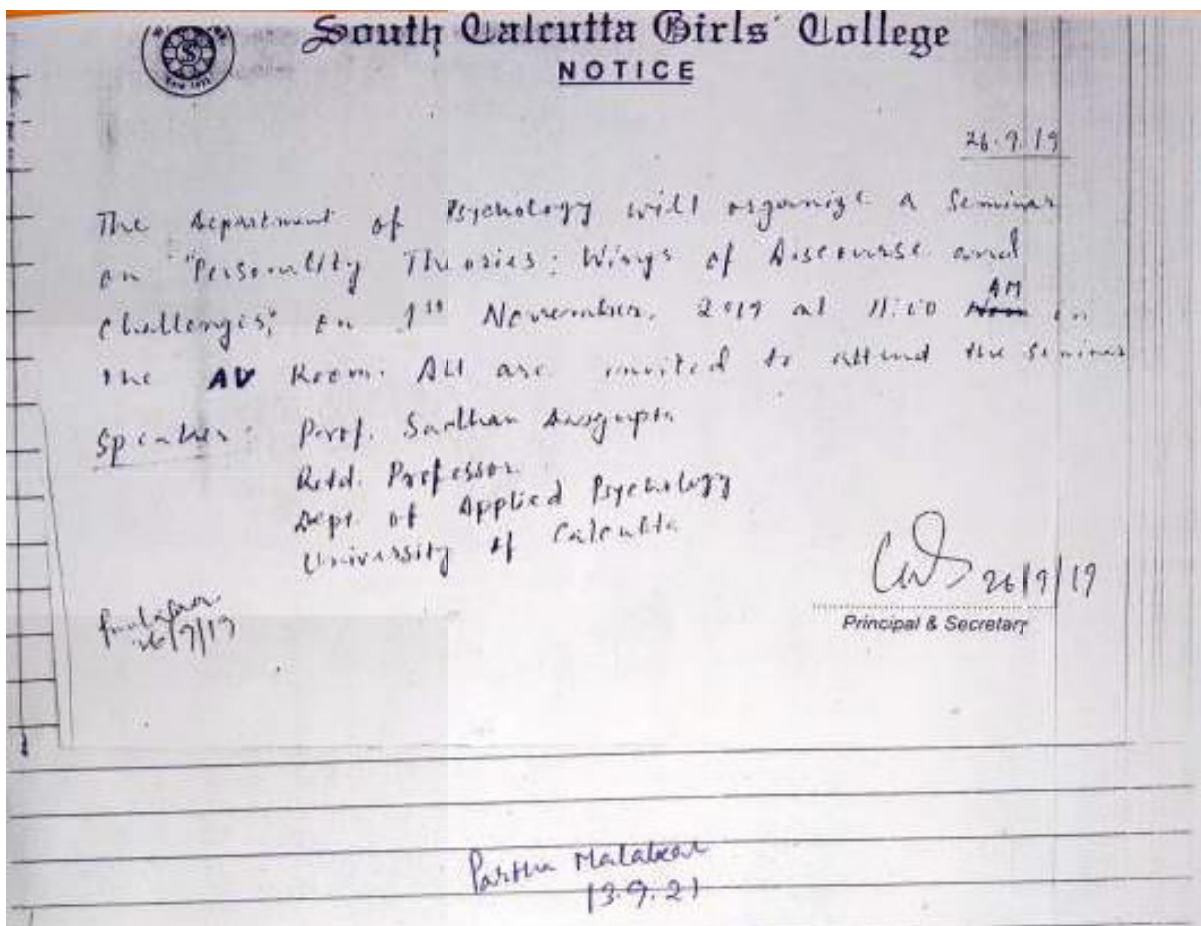 South Calcutta Girls' College
NOTICE
26.9.19
The Department of Psychology will organize a Seminar
on "Personality Theories: Wings of Discourse and
Challenges", on 1st November, 2019 at 11:00 AM in
the AV Room. All are invited to attend the seminar
Speaker: Prof. Sadhan Dasgupta
Retd. Professor
Dept. of Applied Psychology
University of Calcutta
26/9/19
Principal & Secretary
26/9/19
Partha Malakar
13.9.21